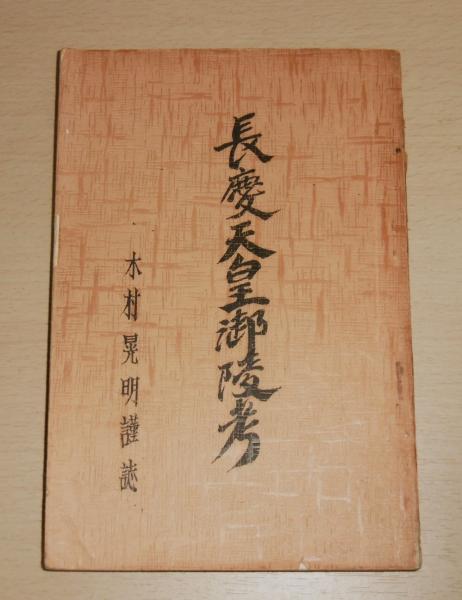 長慶天皇御陵考
木村晃明謹誌